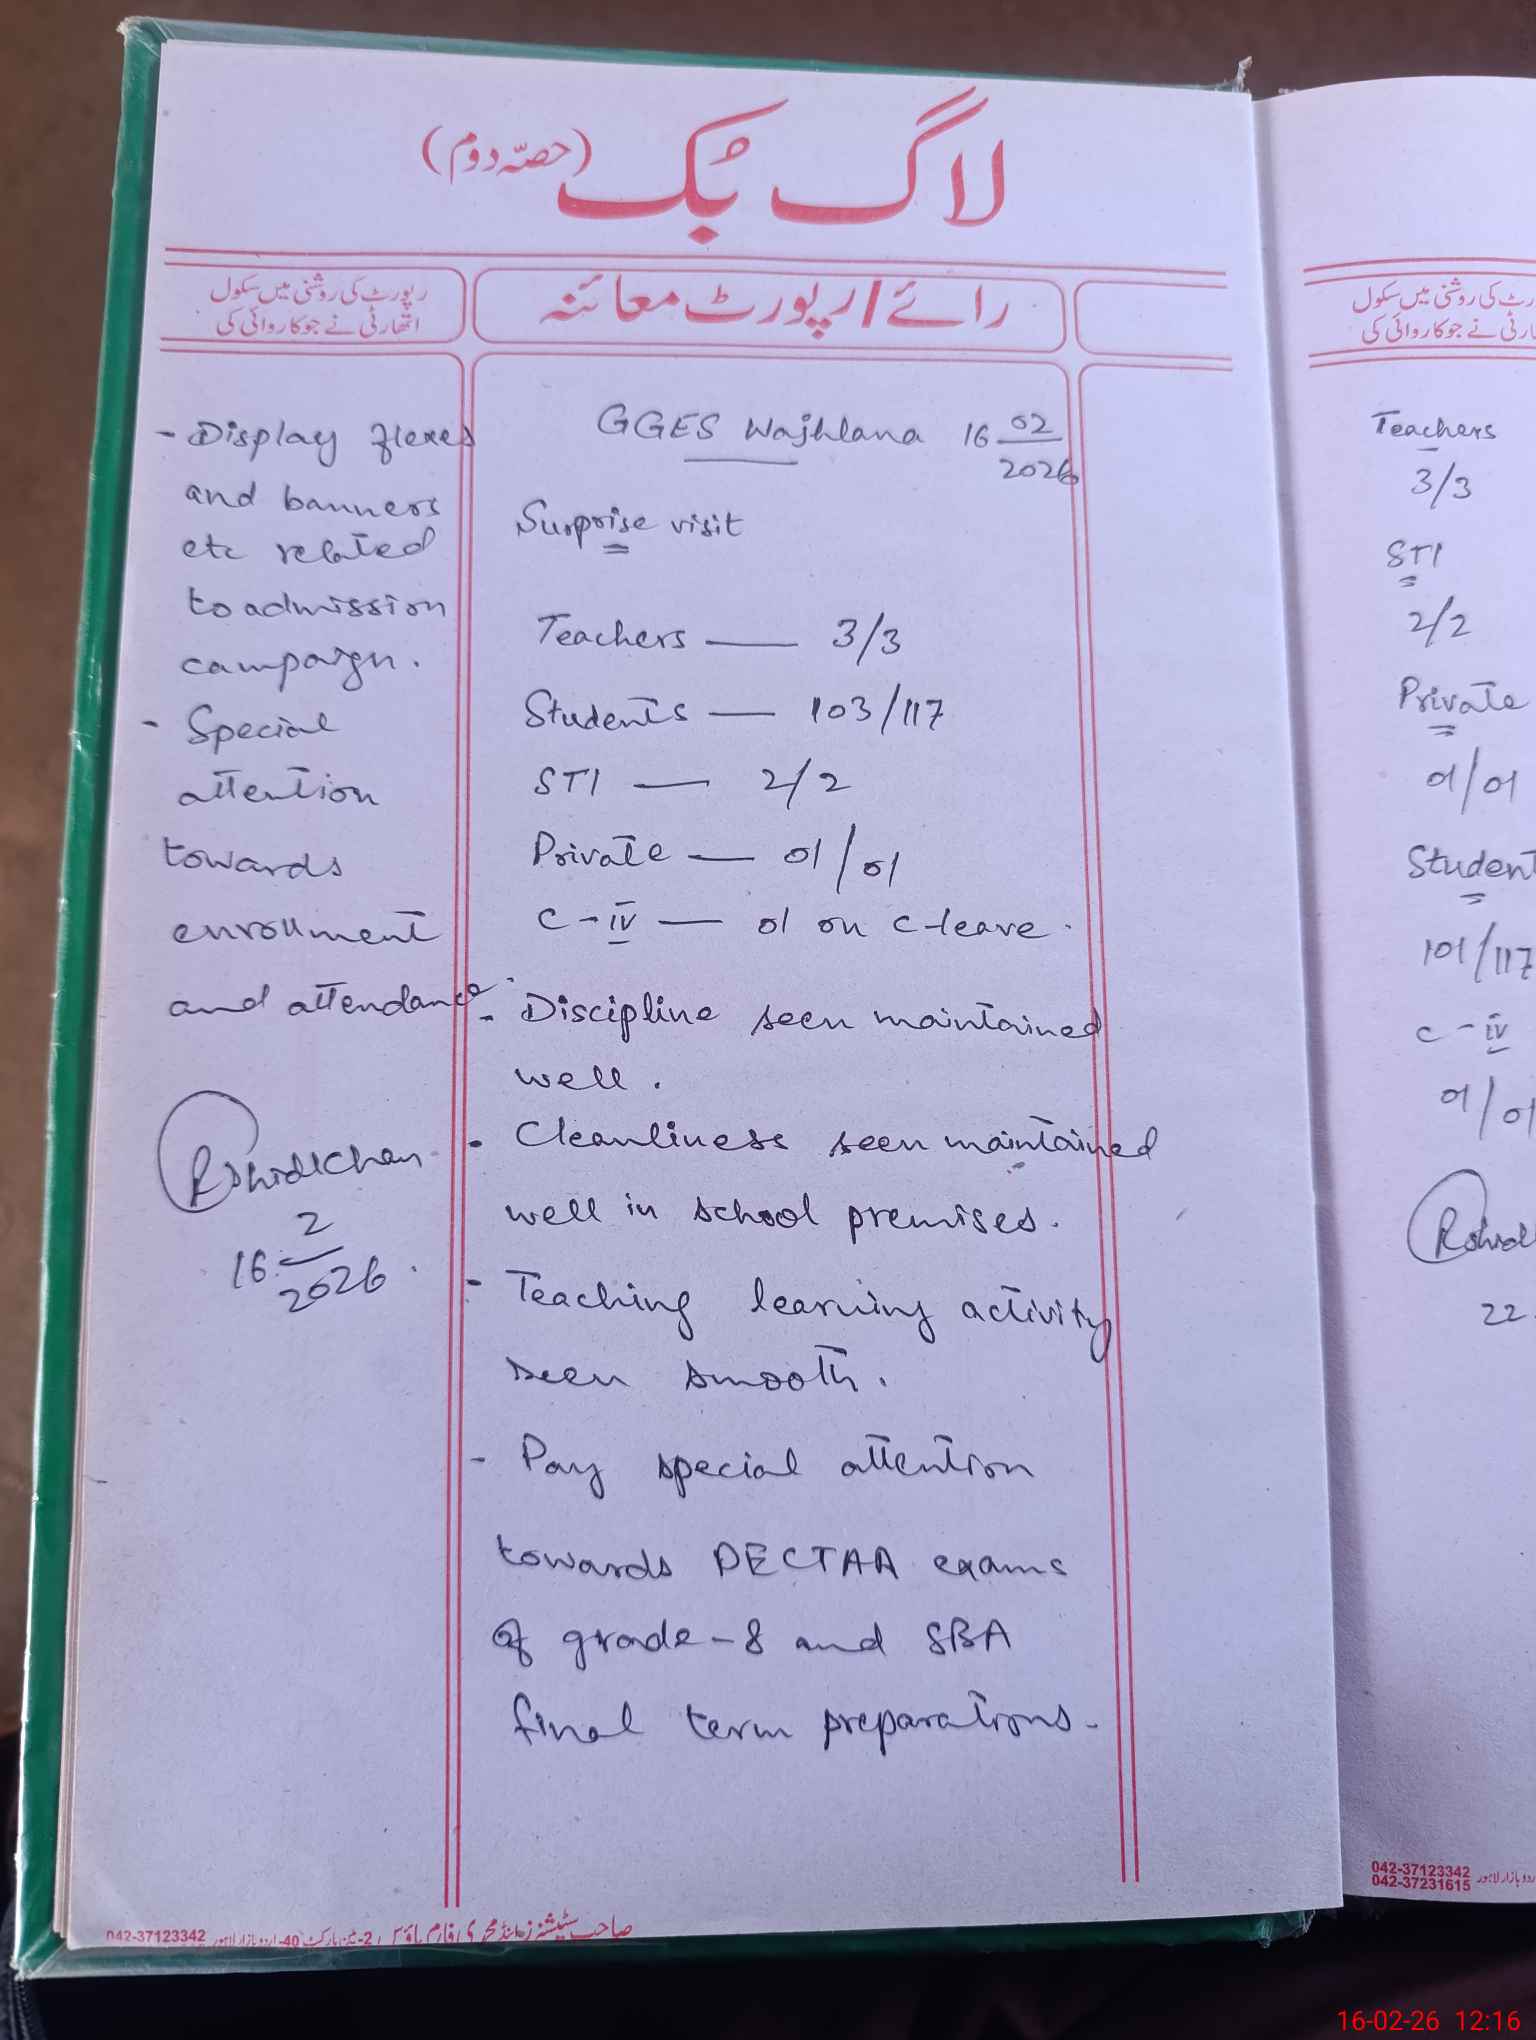 لاگ بُک (حصّہ دوم)
رپورٹ کی روشنی میں سکول
اتھارٹی نے جو کاروائی کی
رائے/رپورٹ معائنہ
- Display flexes
and banners
etc related
to admission
campaign.
- Special
attention
towards
enrollment
and attendance.
16 2/2026
GGES Wajhlana 16 02/2026
Surprise visit
Teachers — 3/3
Students — 103/117
STI — 2/2
Private — 01/01
C-iv — 01 on C-leave.
- Discipline seen maintained
well.
- Cleanliness seen maintained
well in school premises.
- Teaching learning activity
seen smooth.
- Pay special attention
towards PECTAA exams
of grade-8 and SBA
final term preparations.
042-37123342
رٹ کی روشنی میں سکول
رٹی نے جو کاروائی کی
Teachers
3/3
STI
2/2
Private
01/01
Student
101/117
C-iv
01/01
22
042-37123342
042-37231615
اردو بازار لاہور
16-02-26 12:16